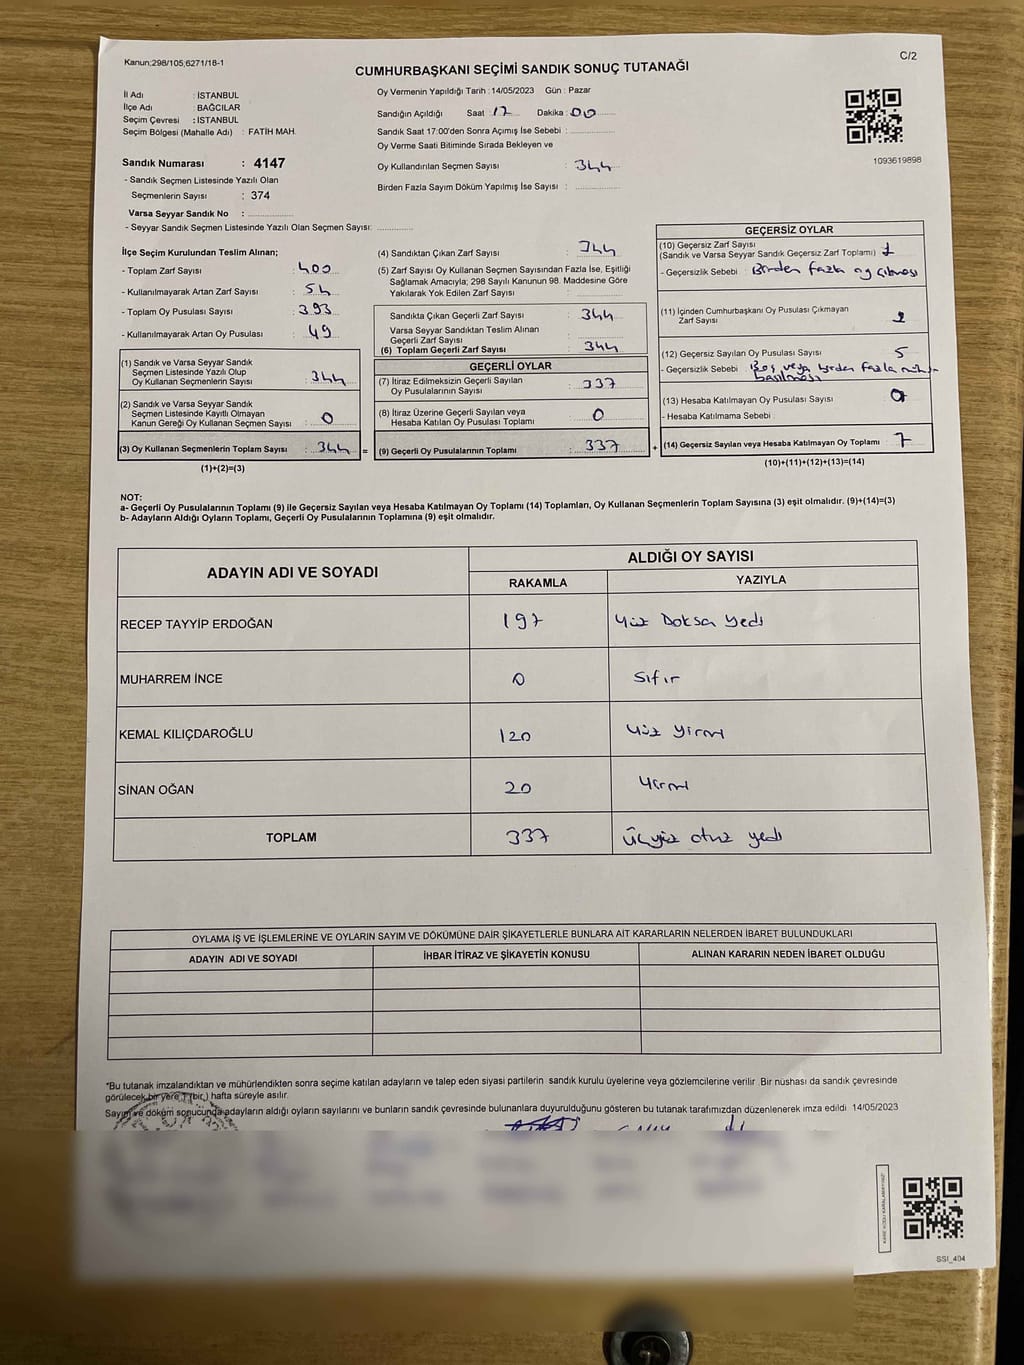 Kanun;298/105;6271/18-1
C/2
CUMHURBAŞKANI SEÇİMİ SANDIK SONUÇ TUTANAĞI
İl Adı : İSTANBUL
İlçe Adı : BAĞCILAR
Seçim Çevresi : İSTANBUL
Seçim Bölgesi (Mahalle Adı) : FATİH MAH.
Sandık Numarası : 4147
- Sandık Seçmen Listesinde Yazılı Olan
Seçmenlerin Sayısı : 374
Varsa Seyyar Sandık No : ...............
- Seyyar Sandık Seçmen Listesinde Yazılı Olan Seçmen Sayısı: .............
Oy Vermenin Yapıldığı Tarih : 14/05/2023 Gün : Pazar
Sandığın Açıldığı Saat 17 Dakika : 00
Sandık Saat 17:00'den Sonra Açımış İse Sebebi : ...............
Oy Verme Saati Bitiminde Sırada Bekleyen ve
Oy Kullandırılan Seçmen Sayısı : 344
Birden Fazla Sayım Döküm Yapılmış İse Sayısı : ...............
1093619898
İlçe Seçim Kurulundan Teslim Alınan;
- Toplam Zarf Sayısı : 400
- Kullanılmayarak Artan Zarf Sayısı : 54
- Toplam Oy Pusulası Sayısı : 393
- Kullanılmayarak Artan Oy Pusulası : 49
(1) Sandık ve Varsa Seyyar Sandık
Seçmen Listesinde Yazılı Olup
Oy Kullanan Seçmenlerin Sayısı : 344
(2) Sandık ve Varsa Seyyar Sandık
Seçmen Listesinde Kayıtlı Olmayan
Kanun Gereği Oy Kullanan Seçmen Sayısı : 0
(3) Oy Kullanan Seçmenlerin Toplam Sayısı : 344 =
(1)+(2)=(3)
(4) Sandıktan Çıkan Zarf Sayısı : 344
(5) Zarf Sayısı Oy Kullanan Seçmen Sayısından Fazla İse, Eşitliği
Sağlamak Amacıyla; 298 Sayılı Kanunun 98. Maddesine Göre
Yakılarak Yok Edilen Zarf Sayısı : ...............
Sandıkta Çıkan Geçerli Zarf Sayısı : 344
Varsa Seyyar Sandıktan Teslim Alınan
Geçerli Zarf Sayısı : ...............
(6) Toplam Geçerli Zarf Sayısı : 344
GEÇERLİ OYLAR
(7) İtiraz Edilmeksizin Geçerli Sayılan
Oy Pusulalarının Sayısı : 337
(8) İtiraz Üzerine Geçerli Sayılan veya
Hesaba Katılan Oy Pusulası Toplamı : 0
(9) Geçerli Oy Pusulalarının Toplamı : 337 +
GEÇERSİZ OYLAR
(10) Geçersiz Zarf Sayısı
(Sandık ve Varsa Seyyar Sandık Geçersiz Zarf Toplamı) : 1
- Geçersizlik Sebebi : Birden fazla oy çıkması
(11) İçinden Cumhurbaşkanı Oy Pusulası Çıkmayan
Zarf Sayısı
(12) Geçersiz Sayılan Oy Pusulası Sayısı : 5
- Geçersizlik Sebebi : Boş veya birden fazla mühür
basılması
(13) Hesaba Katılmayan Oy Pusulası Sayısı : 0
- Hesaba Katılmama Sebebi :
(14) Geçersiz Sayılan veya Hesaba Katılmayan Oy Toplamı : 7
(10)+(11)+(12)+(13)=(14)
NOT:
a- Geçerli Oy Pusulalarının Toplamı (9) ile Geçersiz Sayılan veya Hesaba Katılmayan Oy Toplamı (14) Toplamları, Oy Kullanan Seçmenlerin Toplam Sayısına (3) eşit olmalıdır. (9)+(14)=(3)
b- Adayların Aldığı Oyların Toplamı, Geçerli Oy Pusulalarının Toplamına (9) eşit olmalıdır.
ADAYIN ADI VE SOYADI ALDIĞI OY SAYISI
RAKAMLA YAZIYLA
RECEP TAYYİP ERDOĞAN 197 Yüz Doksa Yedi
MUHARREM İNCE 0 Sıfır
KEMAL KILIÇDAROĞLU 120 Yüz yirmi
SİNAN OĞAN 20 Yirmi
TOPLAM 337 Üçyüz otuz yedi
OYLAMA İŞ VE İŞLEMLERİNE VE OYLARIN SAYIM VE DÖKÜMÜNE DAİR ŞİKAYETLERLE BUNLARA AİT KARARLARIN NELERDEN İBARET BULUNDUKLARI
ADAYIN ADI VE SOYADI İHBAR İTİRAZ VE ŞİKAYETİN KONUSU ALINAN KARARIN NEDEN İBARET OLDUĞU
*Bu tutanak imzalandıktan ve mühürlendikten sonra seçime katılan adayların ve talep eden siyasi partilerin sandık kurulu üyelerine veya gözlemcilerine verilir .Bir nüshası da sandık çevresinde
görülecek bir yere 1 (bir) hafta süreyle asılır.
Sayım ve döküm sonucunda adayların aldığı oyların sayılarını ve bunların sandık çevresinde bulunanlara duyurulduğunu gösteren bu tutanak tarafımızdan düzenlenerek imza edildi 14/05/2023
SSI_404